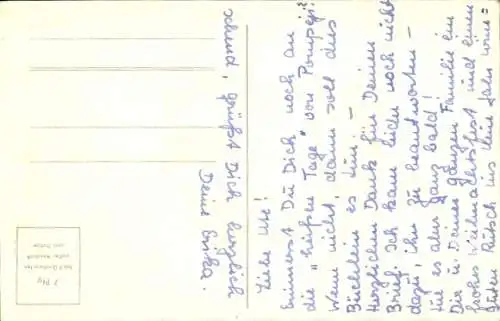 Liebe Ute!
Erinnerst Du Dich noch an
die "heißen Tage" von Pompeji?
Wenn nicht, dann soll dies
Büchlein es tun –
Herzlichen Dank für Deinen
Brief. Ich kam leider noch nicht
dazu, ihn zu beantworten –
tue es aber ganz bald!
Dir u. Deiner ganzen Familie ein
frohes Weihnachtsfest und einen
guten Rutsch ins neue Jahr wün-
schend, grüßt Dich herzlich
Deine Erika.
7 Pfg